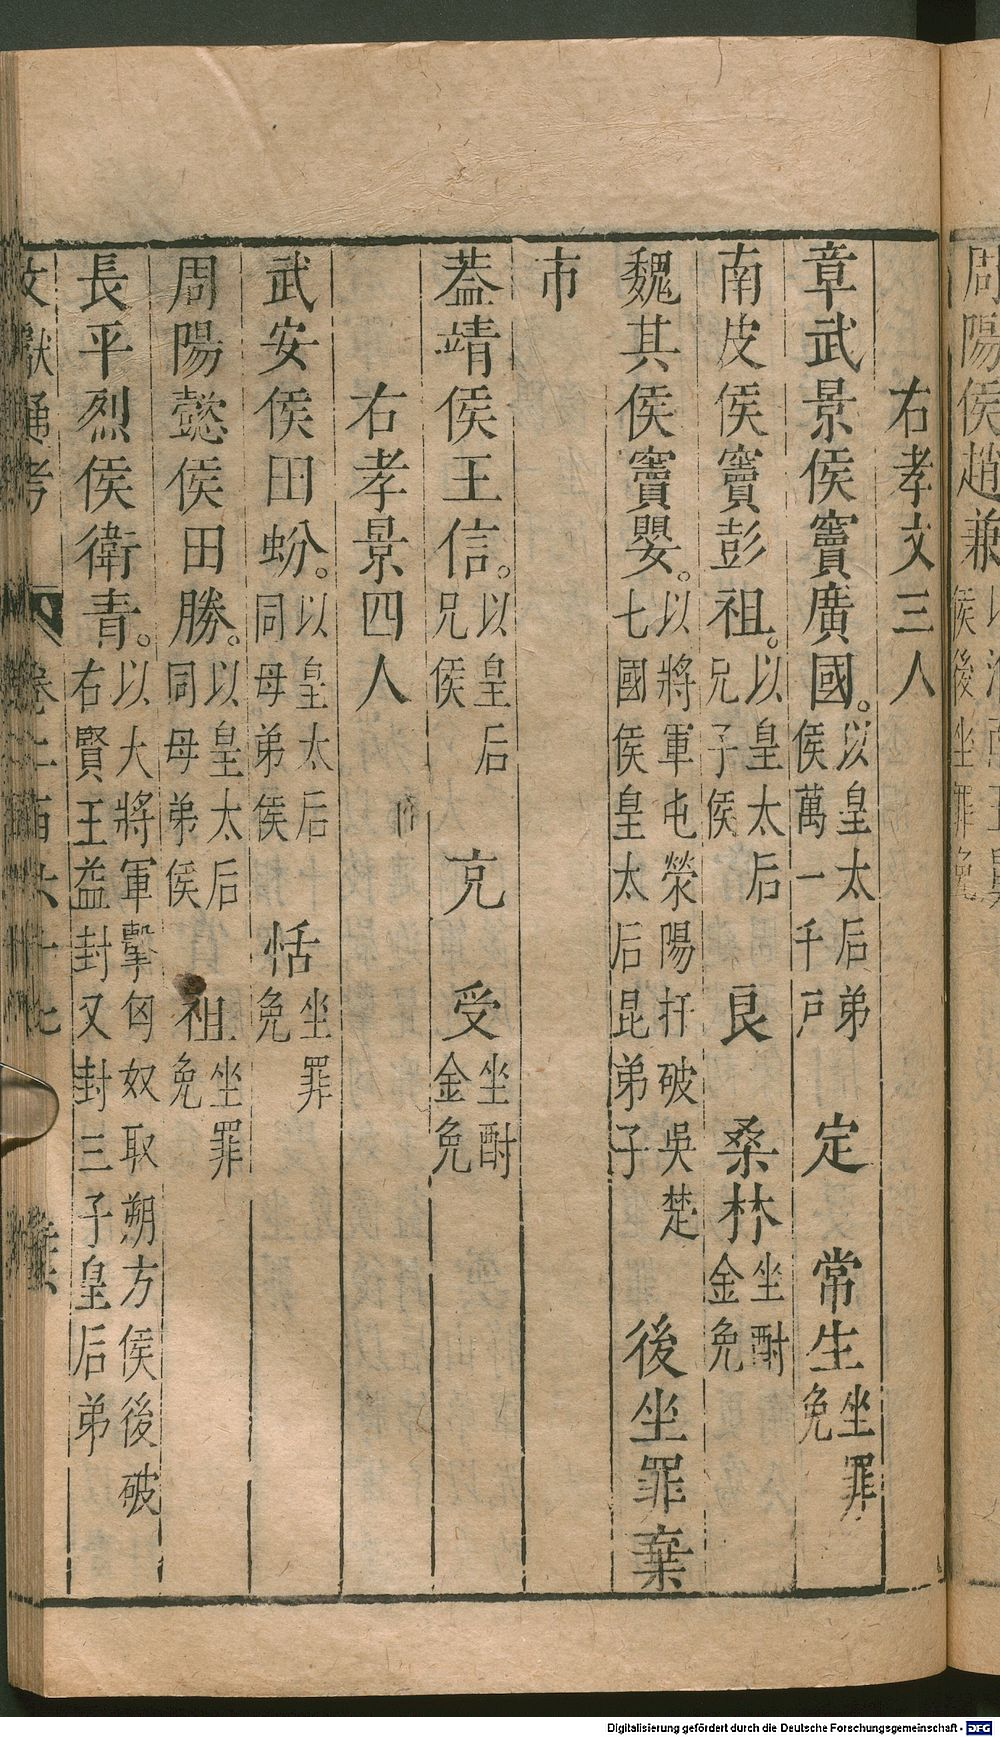 右孝文三人
章武景侯竇廣國。以皇太后弟侯萬一千戸 定 常生坐罪免
南皮侯竇彭祖。以皇太后兄子侯 良 桑林坐酎金免
魏其侯竇嬰。以將軍屯滎陽扞破吳楚七國侯皇太后昆弟子 後坐罪棄
市
蓋靖侯王信。以皇后兄侯 克 受坐酎金免
右孝景四人
武安侯田蚡。以皇太后同母弟侯 恬坐罪免
周陽懿侯田勝。以皇太后同母弟侯 祖坐罪免
長平烈侯衛青。以大將軍擊匈奴取朔方侯後破右賢王益封又封三子皇后弟
文獻通考 卷二百六十七
周陽侯趙兼
Digitalisierung gefördert durch die Deutsche Forschungsgemeinschaft - DFG